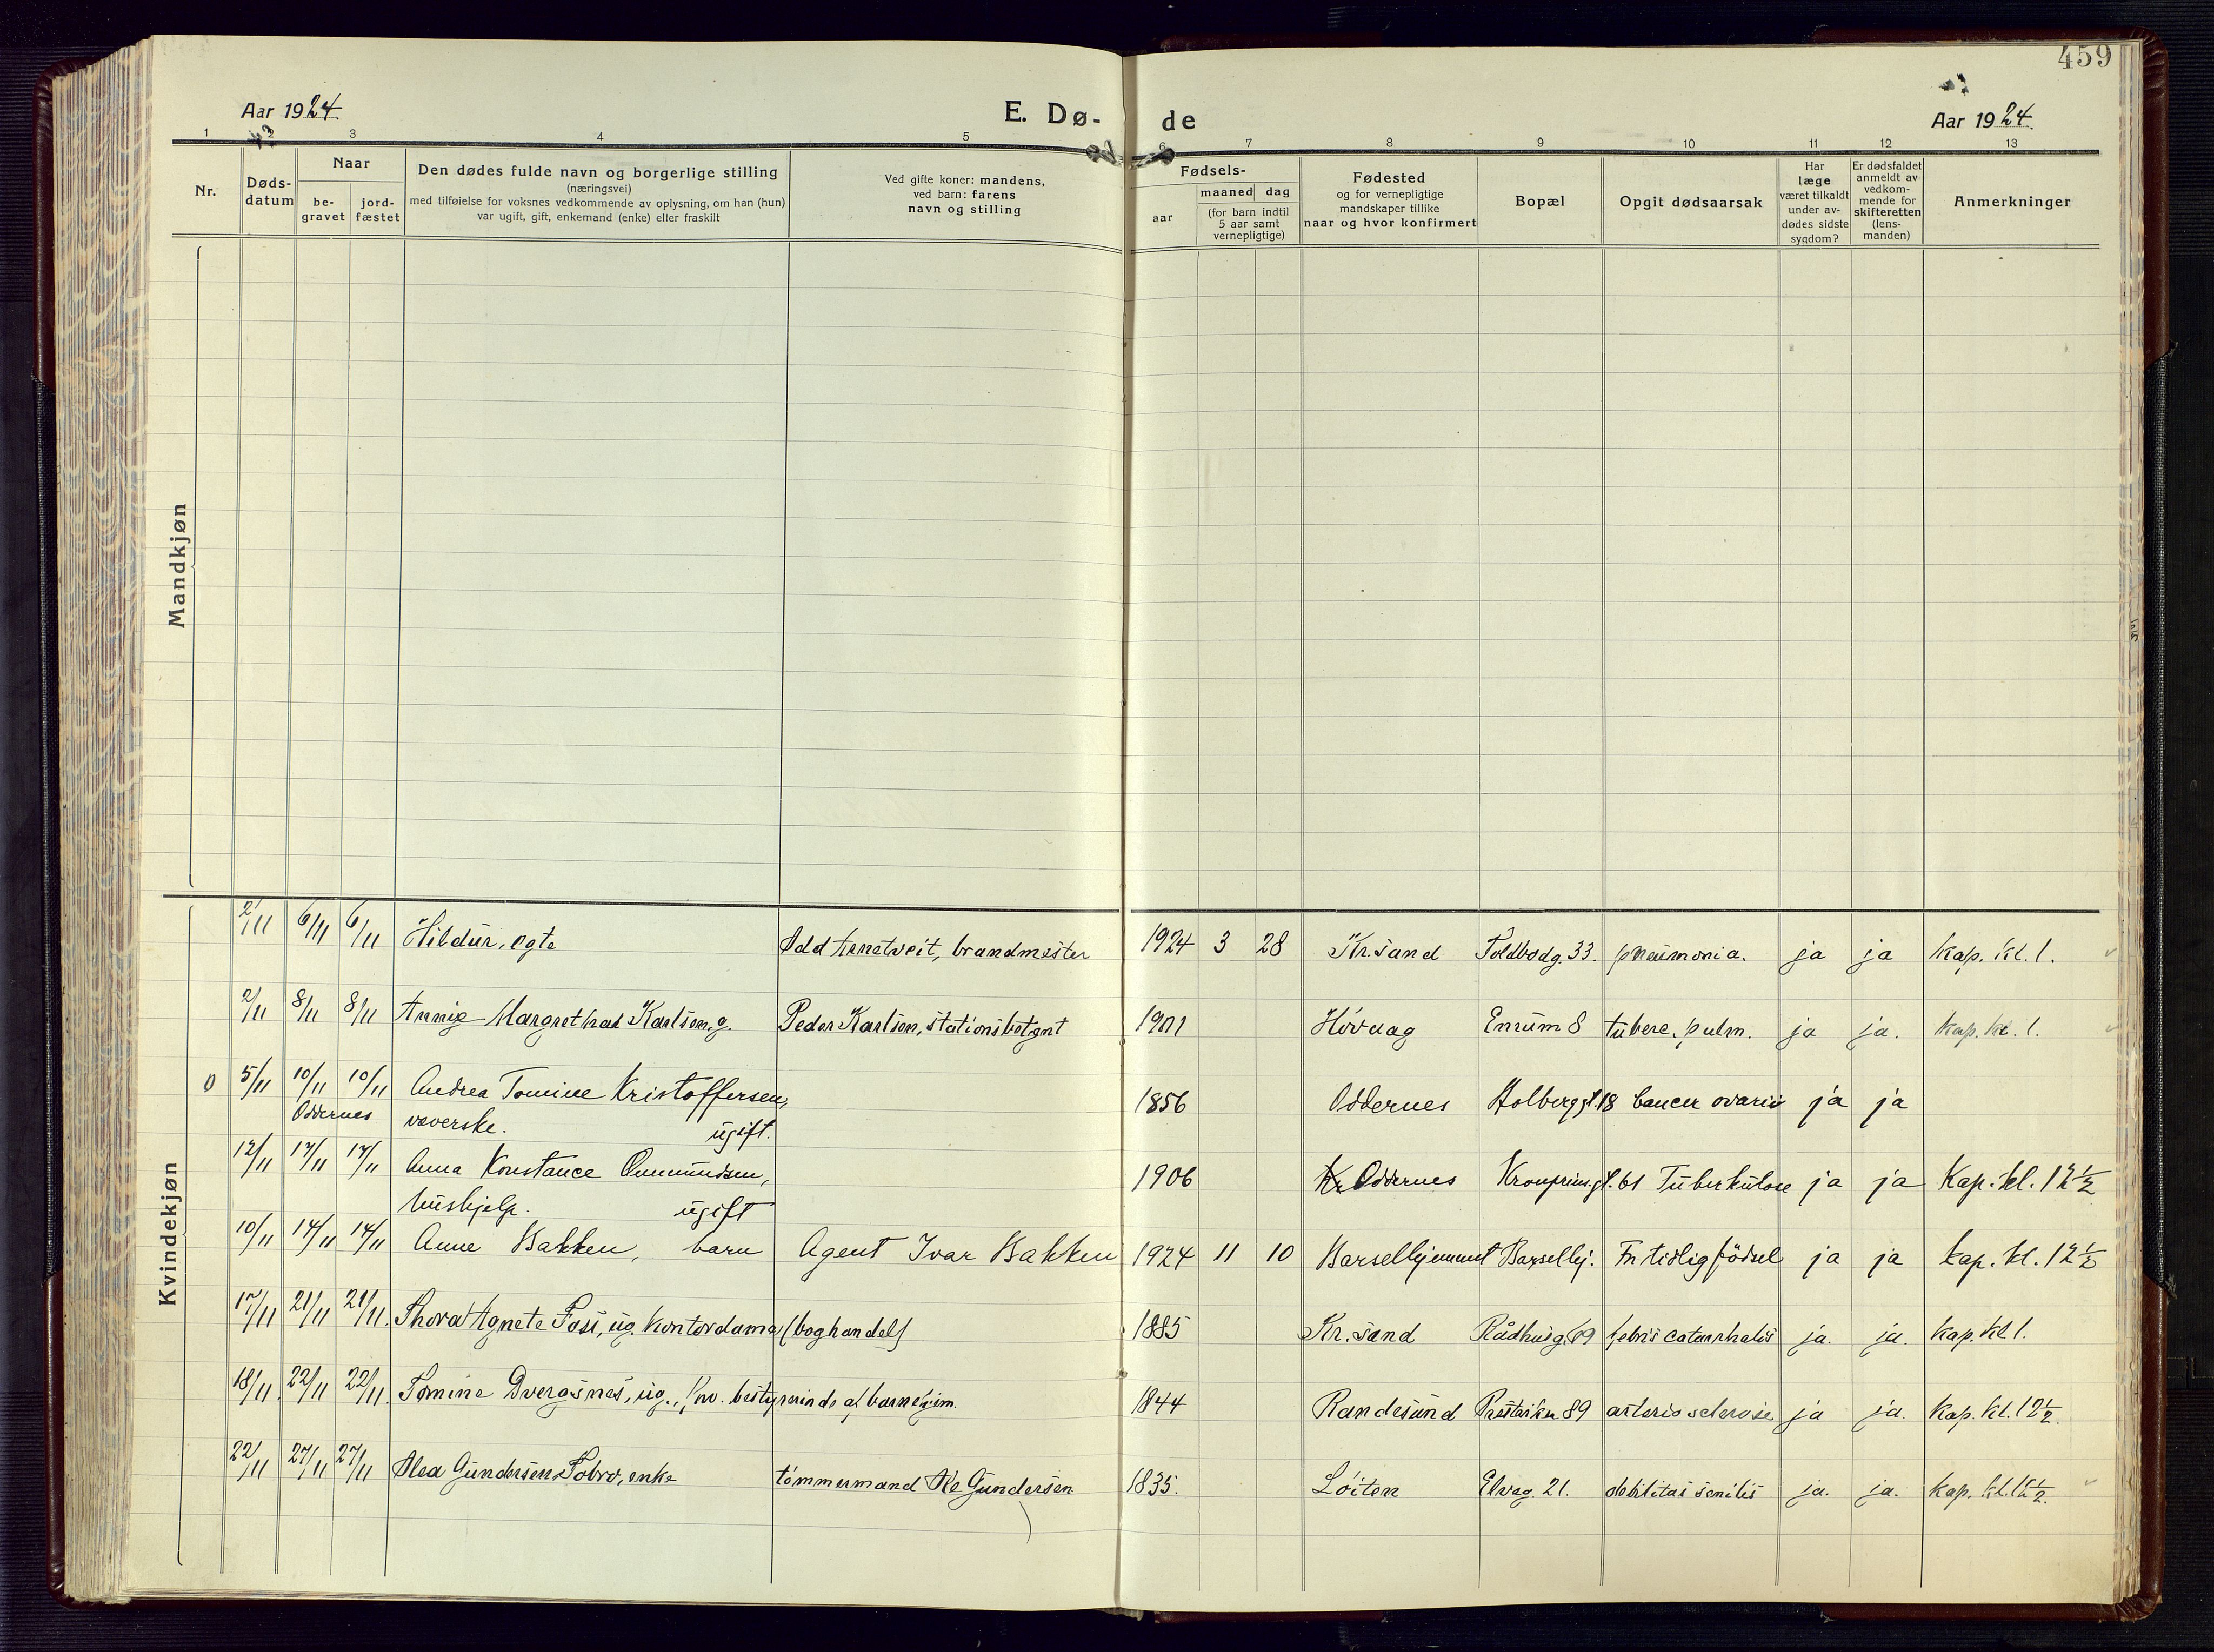 459
Aar 1924.
E. Dø- de
Aar 1924.
1 2 3 4 5 6 7 8 9 10 11 12 13
Nr.
Døds-
datum
Naar
be-
gravet
jord-
fæstet
Den dødes fulde navn og borgerlige stilling
(næringsvei)
med tilføielse for voksnes vedkommende av oplysning, om han (hun)
var ugift, gift, enkemand (enke) eller fraskilt
Ved gifte koner: mandens,
ved barn: farens
navn og stilling
Fødsels-
aar
maaned dag
(for barn indtil
5 aar samt
vernepligtige)
Fødested
og for vernepligtige
mandskaper tillike
naar og hvor konfirmert
Bopæl
Opgit dødsaarsak
Har
læge
været tilkaldt
under av-
dødes sidste
sygdom?
Er dødsfaldet
anmeldt av
vedkom-
mende for
skifteretten
(lens-
manden)
Anmerkninger
Mandkjøn
Kvindekjøn
2/11 6/11 6/11 Hildur, egte Odd Arnetveit, brandmester 1924 3 28 Kr.sand Toldbodg. 33. pneumonia. ja ja Kap. kl. 1.
2/11 8/11 8/11 Annie Margrethad Karlsen, g. Peder Karlsen, stationsbetjent 1901 Hövaag Enrum 8 tuberc. pulm. ja ja. Kap. kl. 1.
0 5/11 10/11 10/11 Andrea Tomine Kristoffersen, 1856 Oddernes Holbergsgt. 18 Cancer ovarii ja ja
Oddernes væverske. ugift.
12/11 17/11 17/11 Anna Konstance Ommundsen, 1906 Oddernes Kronprinsgt. 61 Tüberkülose ja ja Kap. kl. 12 1/2
hushjelp. ugift
10/11 14/11 14/11 Anne Bakken, barn Agent Ivar Bakken 1924 11 10 Barselhjemmet Barselhj. For tidlig födsel ja ja Kap. kl. 12 1/2
17/11 21/11 21/11. Thora Agnete Foss, ug. kontordame (boghandel) 1885 Kr.sand Rådhusg. 69 febris catarrhalis ja. ja. Kap. kl. 1.
18/11. 22/11 22/11. Tomine Dvergsnes, ug., fhv. bestyrerinde af barnehjem. 1844 Randesund 89 arteriosclerose ja ja. Kap. kl. 12 1/2.
22/11 27/11 27/11 Olea Gundersen Tobro, enke tömmermand Ole Gundersen 1835. Löiten Elveg. 21. debilitas senilis ja. ja. Kap. kl. 12 1/2.